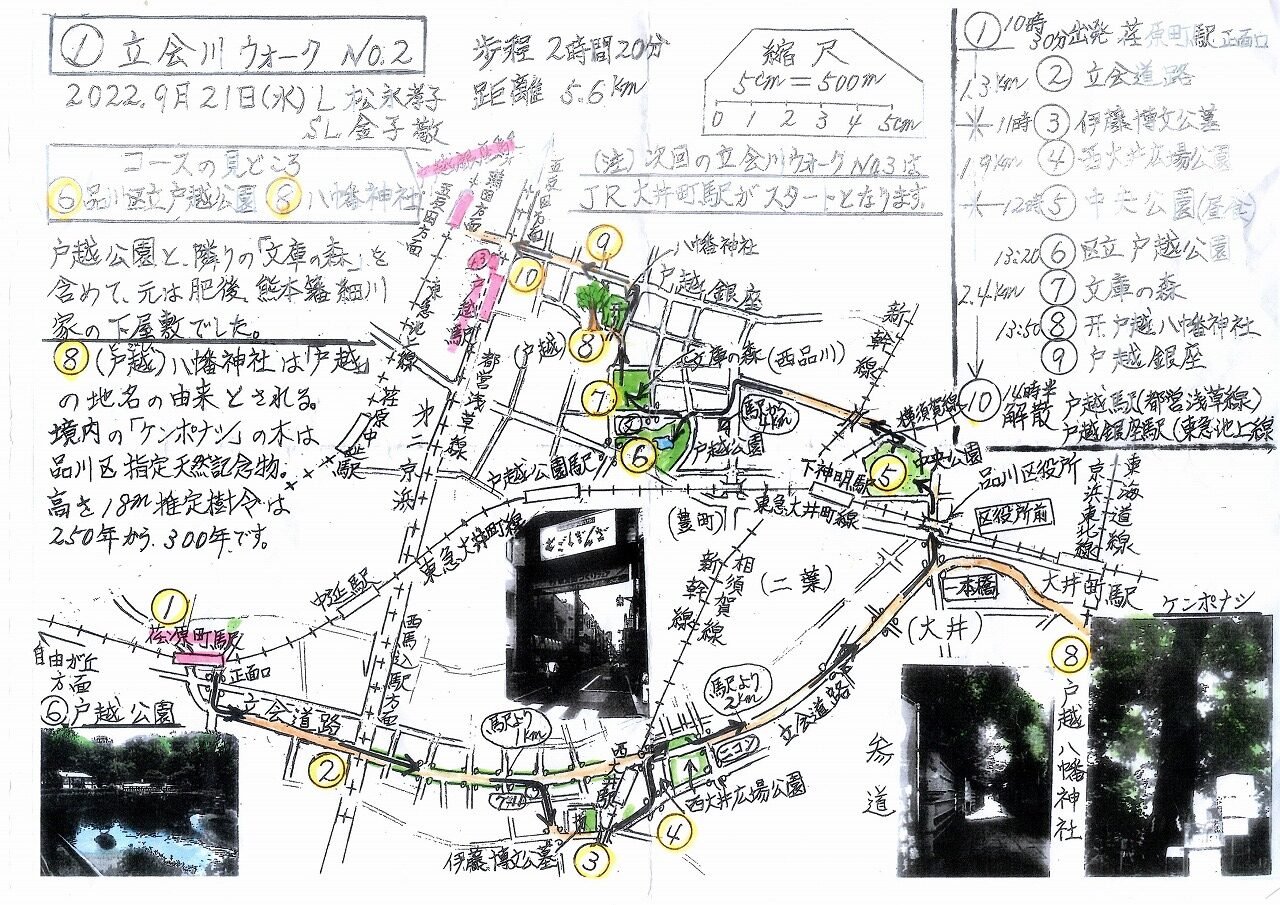 ① 立会川ウォーク No.2
2022.9月21日(水) L 松永孝子
SL 金子敬
歩程 2時間20分
距離 5.6Km
縮尺
5cm=500m
0 1 2 3 4 5cm
(注) 次回の立会川ウォークNo.3は
JR大井町駅がスタートとなります。
コースの見どころ
⑥品川区立戸越公園 ⑧八幡神社
戸越公園と、隣りの「文庫の森」を
含めて、元は肥後、熊本藩細川
家の下屋敷でした。
⑧(戸越)八幡神社は「戸越」
の地名の由来とされる。
境内の「ケンポナシ」の木は
品川区指定天然記念物。
高さ18m推定樹令は
250年から300年です。
① 10時30分出発 荏原町駅正面口
1.3Km ② 立会道路
11時 ③ 伊藤博文公墓
1.9Km ④ 西大井広場公園
12時 ⑤ 中央公園(昼食)
13:20 ⑥ 区立戸越公園
2.4Km ⑦ 文庫の森
13:50 ⑧ 戸越八幡神社
⑨ 戸越銀座
⑩ 14時半解散 戸越駅(都営浅草線)
戸越銀座駅(東急池上線
五反田方面
五反田方面
蒲田方面
⑨
⑩
八幡神社
戸越銀座
戸越駅
東急池上線
都営浅草線
第二京浜
荏原中延駅
(戸越)
⑧
⑦
文庫の森
(西品川)
新幹線
横須賀線
駅から4Km
⑥
文
戸越公園
戸越公園駅
下神明駅
⑤
中央公園
品川区役所
区役所前
京浜東北線
東海道線
東急大井町線
東急大井町線
(豊町)
とごしぎんざ
中延駅
新幹線
相須賀線
(二葉)
二本橋
大井町駅
ケンポナシ
(大井)
①
荏原町駅
正面口
自由が丘方面
西馬込駅方面
⑥戸越公園
立会道路
②
駅より1km
駅より2km
立会道路
ニコン
西大井駅
西大井広場公園
④
伊藤博文公墓
③
参道
⑧戸越八幡神社